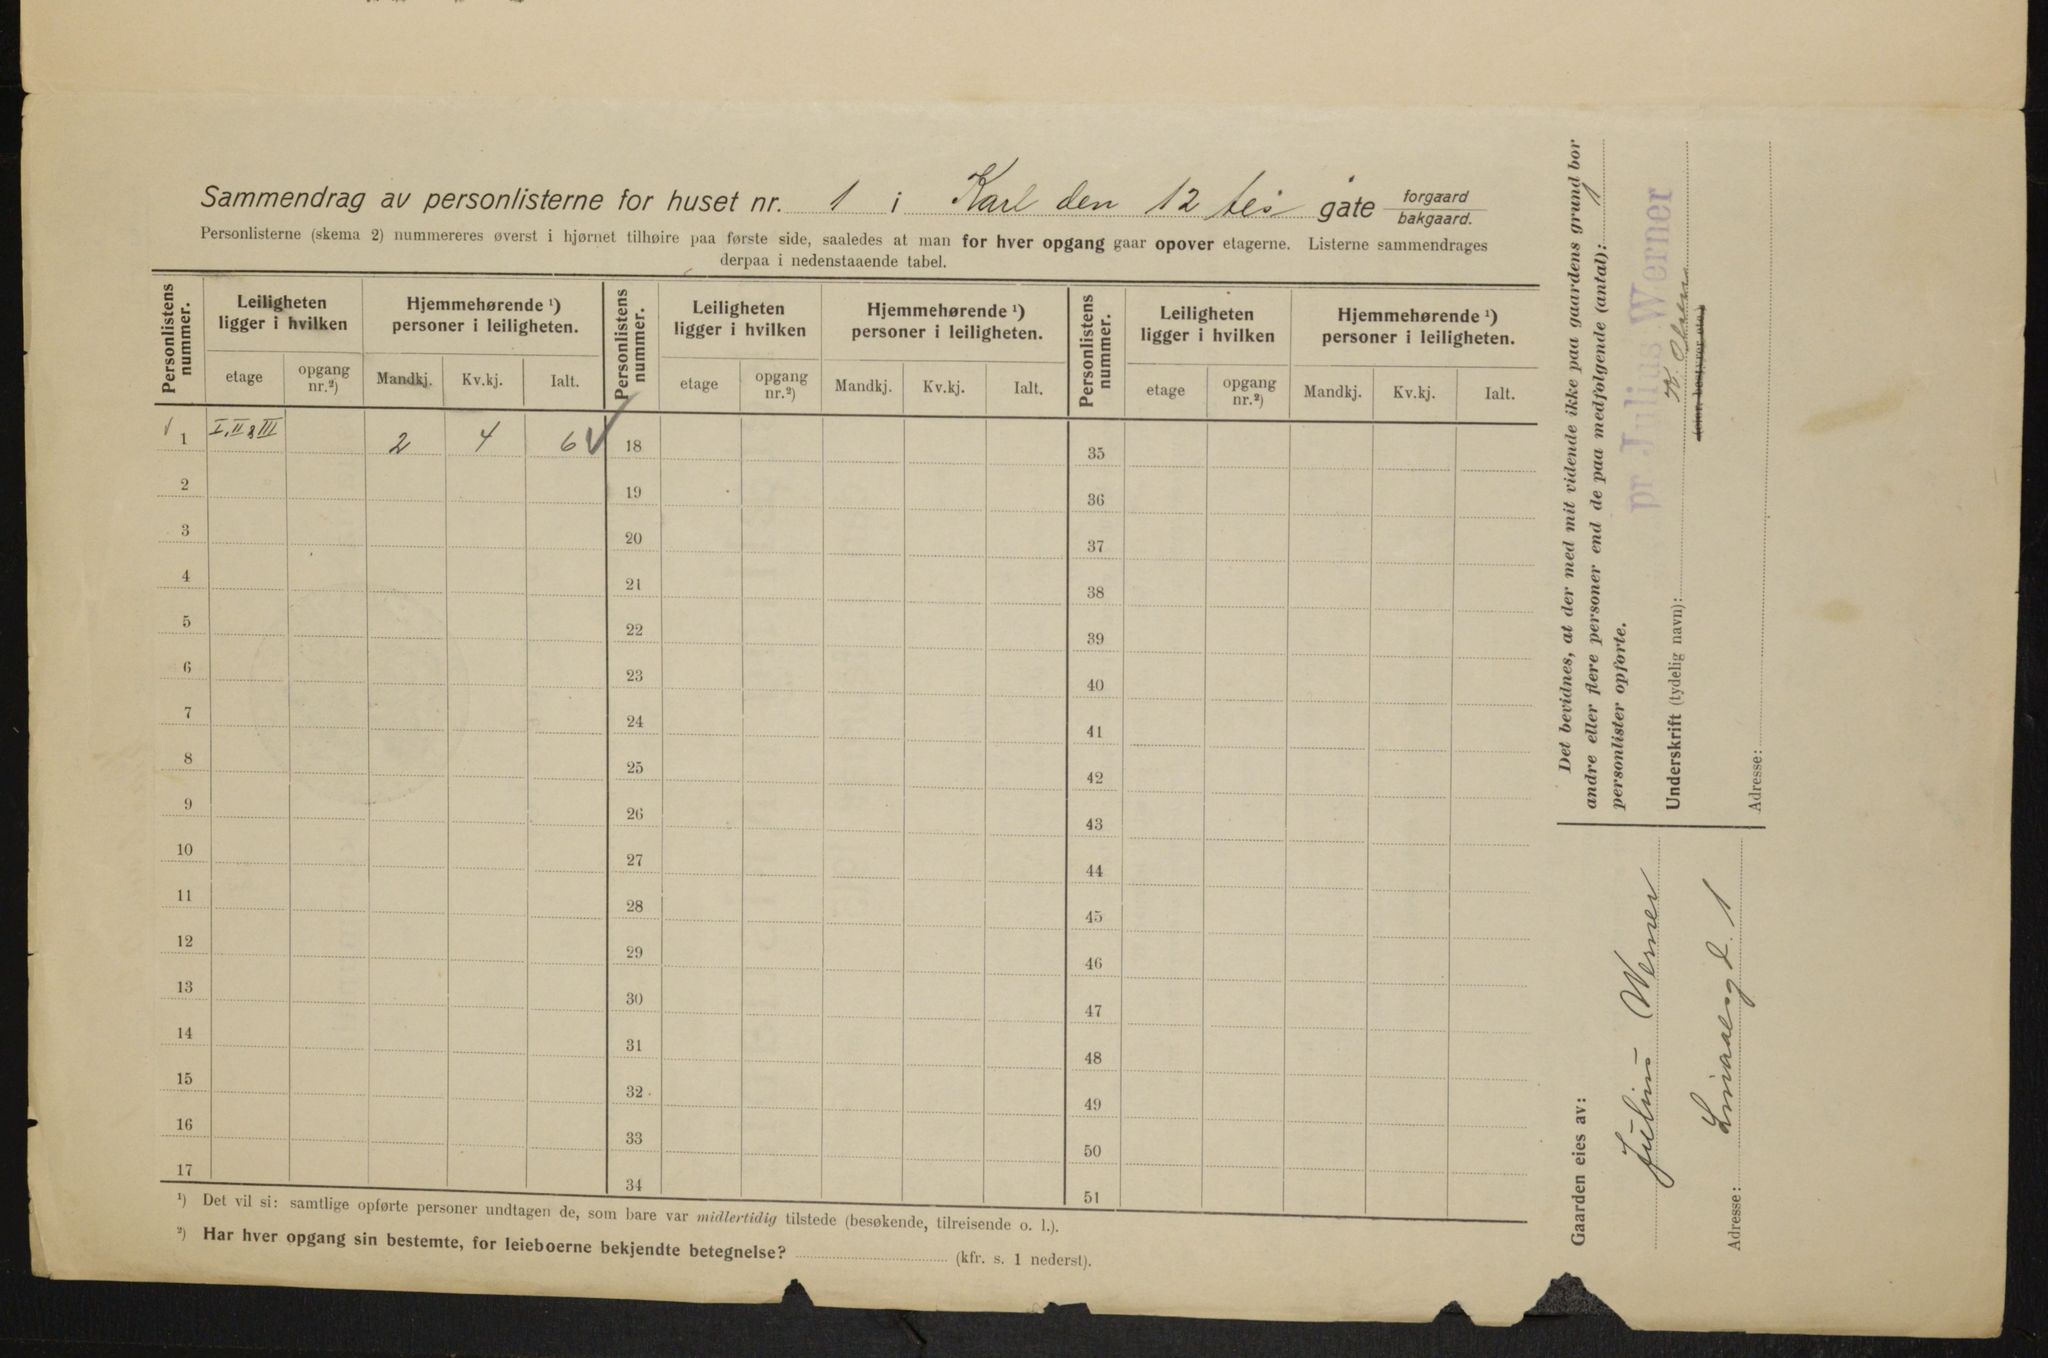 Sammendrag av personlisterne for huset nr. 1 i Karl den 12 tes gate forgaard bakgaard.
Personlisterne (skema 2) nummereres øverst i hjørnet tilhøire paa første side, saaledes at man for hver opgang gaar opover etagerne. Listerne sammendrages
derpaa i nedenstaaende tabel.
Personlistens nummer. Leiligheten ligger i hvilken Hjemmehørende ¹) personer i leiligheten. Personlistens nummer. Leiligheten ligger i hvilken Hjemmehørende ¹) personer i leiligheten. Personlistens nummer. Leiligheten ligger i hvilken Hjemmehørende ¹) personer i leiligheten.
etage opgang nr.²) Mandkj. Kv.kj. Ialt. etage opgang nr.²) Mandkj. Kv.kj. Ialt. etage opgang nr.²) Mandkj. Kv.kj. Ialt.
1 I, II & III 2 4 6 18 35
2 19 36
3 20 37
4 21 38
5 22 39
6 23 40
7 24 41
8 25 42
9 26 43
10 27 44
11 28 45
12 29 46
13 30 47
14 31 48
15 32 49
16 33 50
17 34 51
¹) Det vil si: samtlige opførte personer undtagen de, som bare var midlertidig tilstede (besøkende, tilreisende o. l.).
²) Har hver opgang sin bestemte, for leieboerne bekjendte betegnelse? (kfr. s. 1 nederst).
Det bevidnes, at der med mit vidende ikke paa gaardens grund bor
andre eller flere personer end de paa medfølgende (antal): 1
personlister opførte.
pr Julius Werner
Underskrift (tydelig navn): K. Olsen
(eier, bestyrer etc.)
Adresse:
Gaarden eies av:
Julius Werner
Adresse: 1